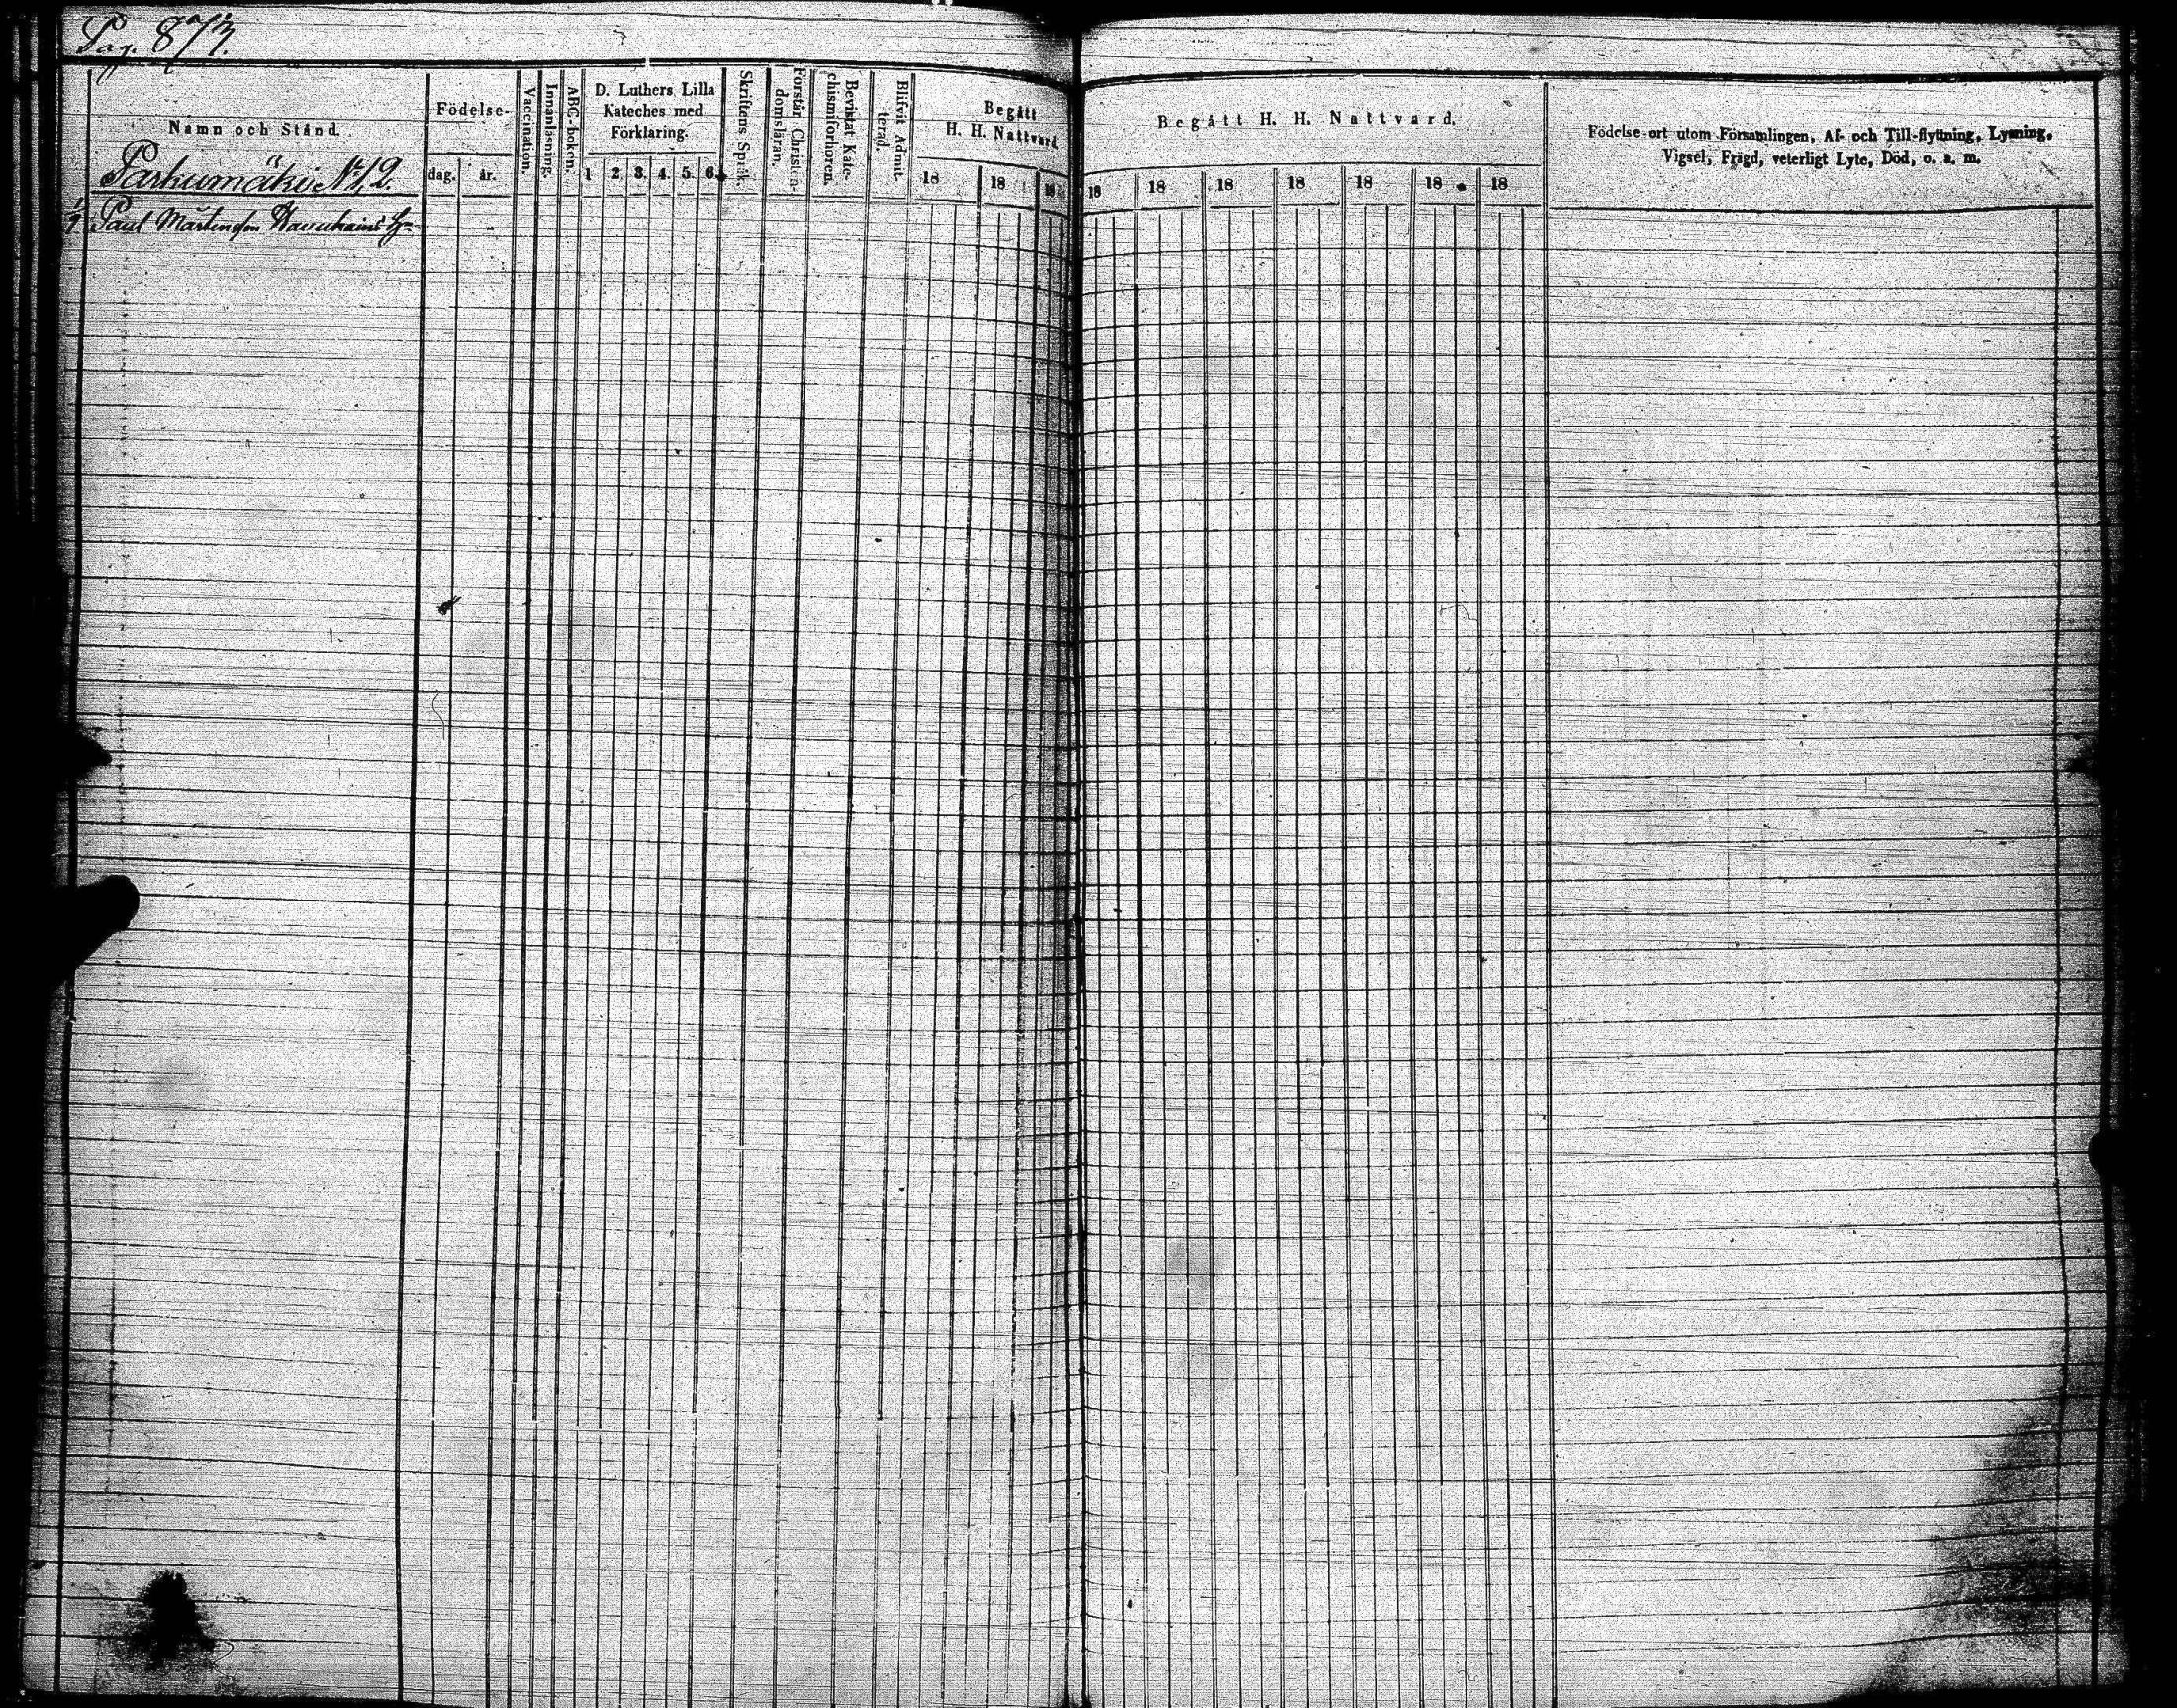 Pag. 873.
Namn och Stånd.
Parkumäki No 12.
Födelse-
dag. år.
Vaccination.
Innanläsning.
ABC-boken.
D. Luthers Lilla
Kateches med
Förklaring.
1 2. 3. 4. 5. 6.
Skriftens Språk.
Förstår Christen-
domsläran.
Bevistat Kate-
chismiförhören.
Blifvit Admit-
terad.
Begått
H. H. Nattvard
18 18 18
Begått H. H. Nattvard.
18 18 18 18 18 18 18
Födelse-ort utom Församlingen, Af- och Till-flyttning, Lysning,
Vigsel, Frägd, veterligt Lyte, Död, o. s. m.
Paul Mårtensson